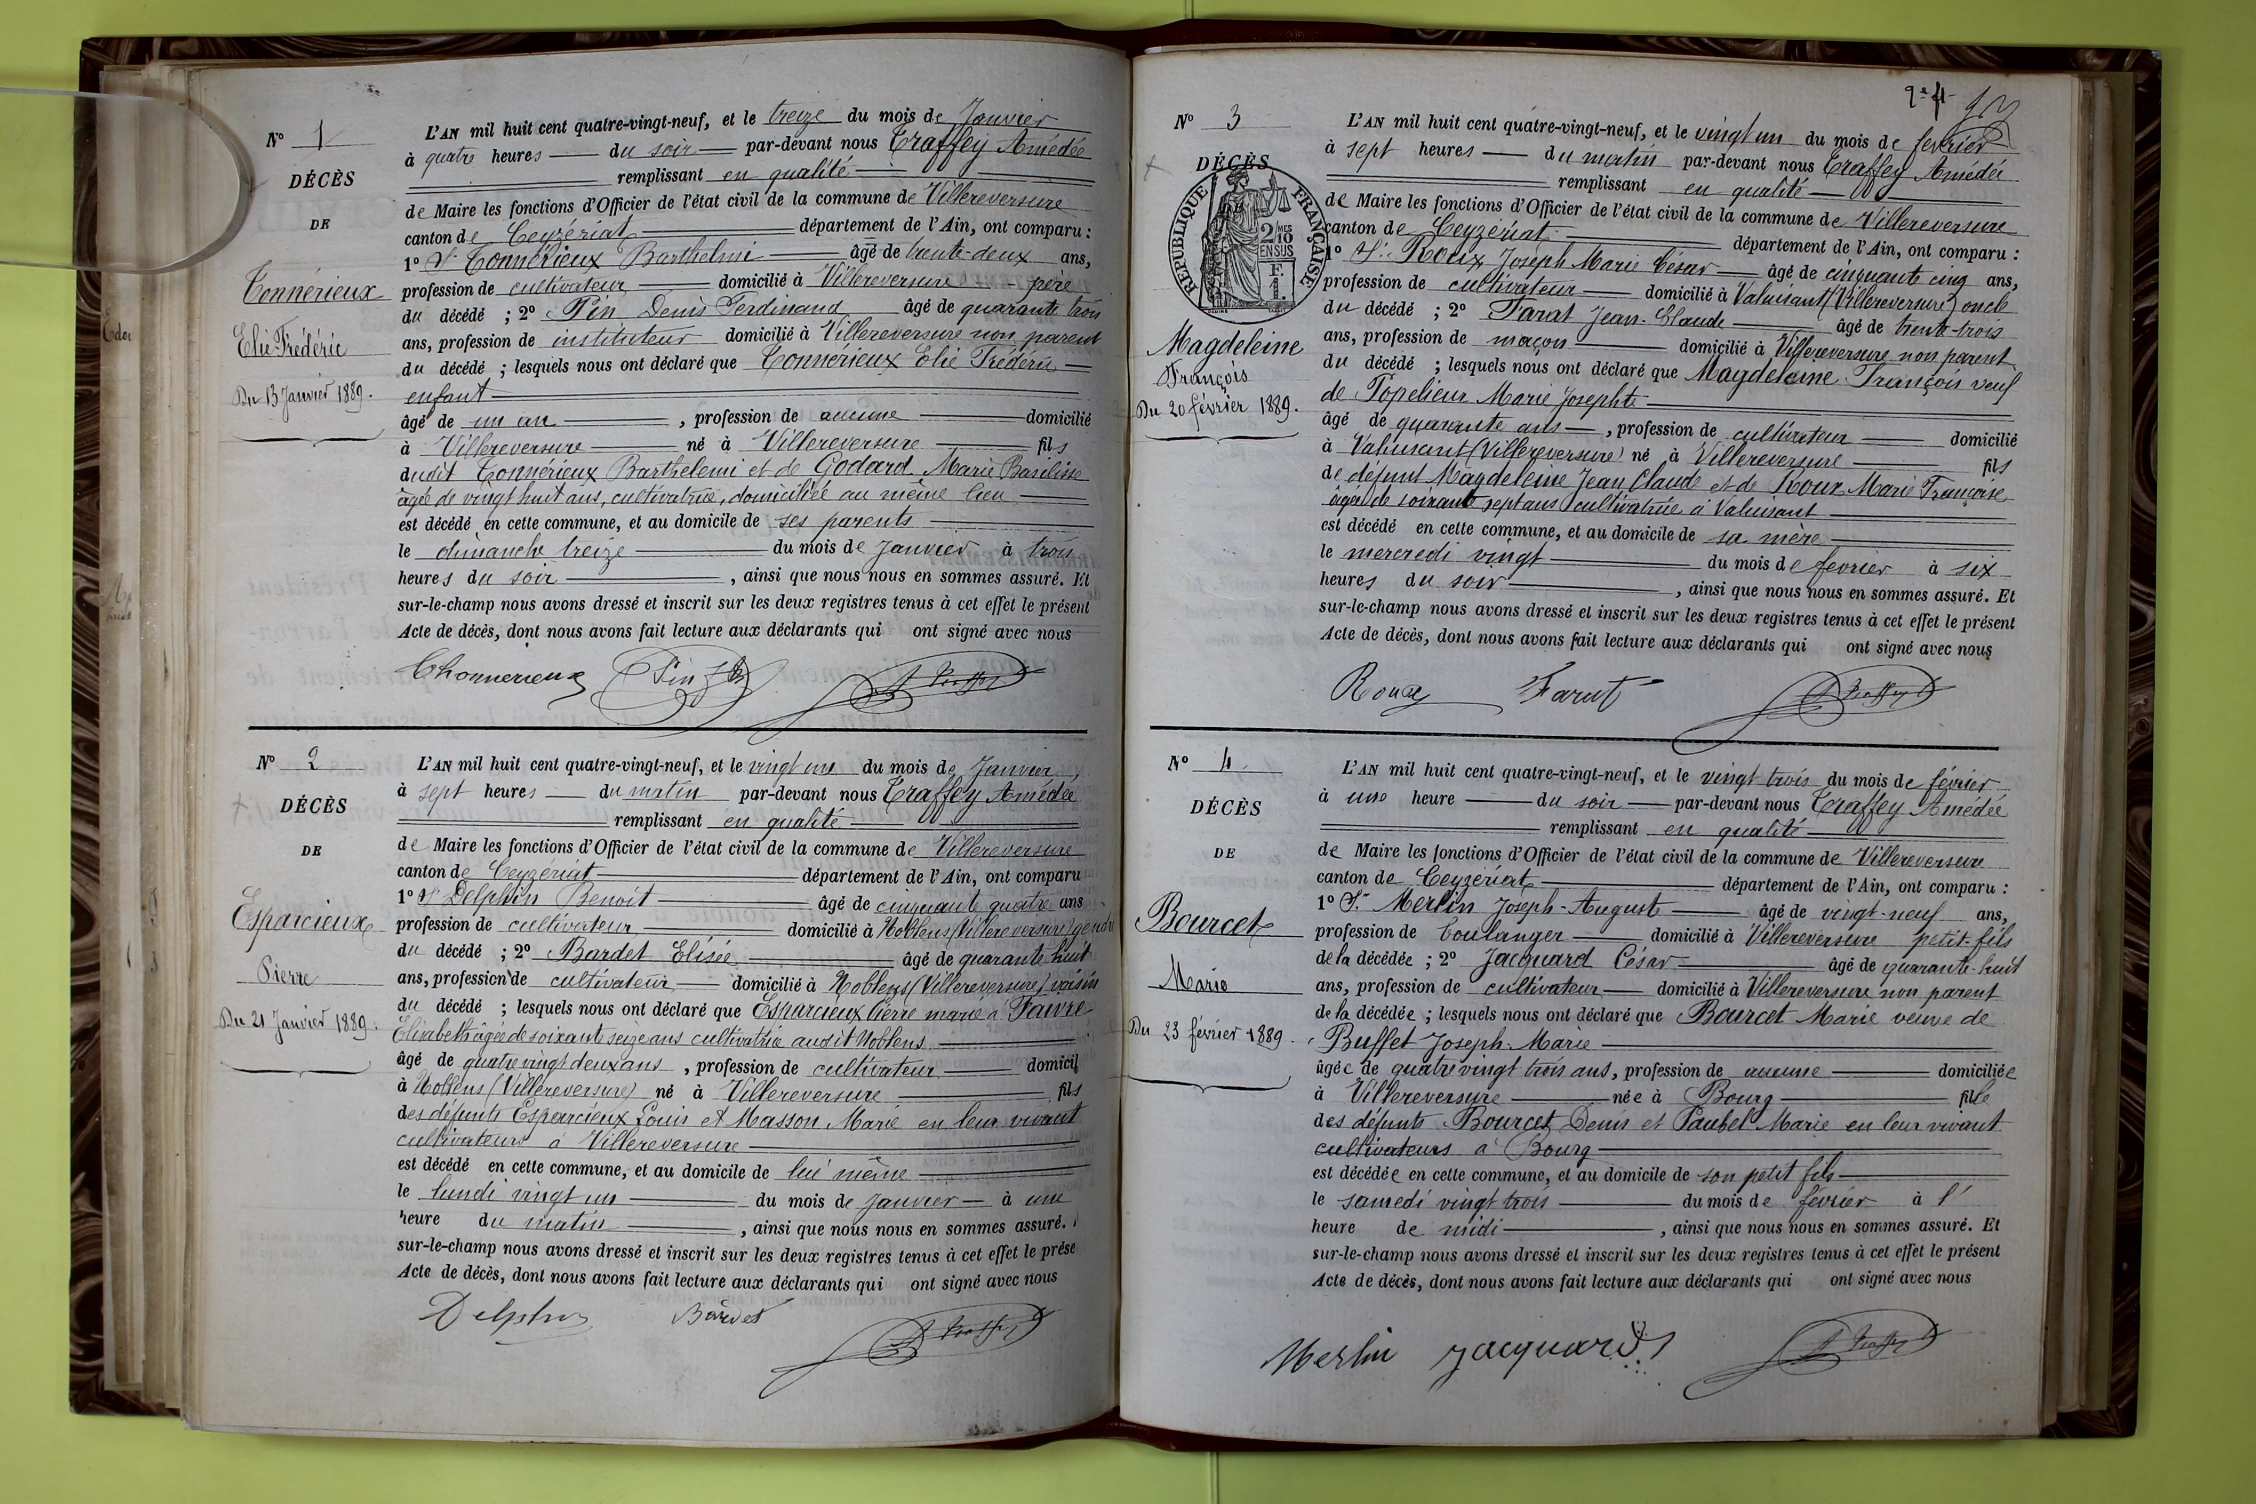 N° 1
DÉCÈS
DE
Connérieux
Elie Frédéric
Du 13 Janvier 1889.
L'AN mil huit cent quatre-vingt-neuf, et le treize du mois de Janvier
à quatre heures du soir par-devant nous Traffey Amédée
remplissant en qualité
de Maire les fonctions d'Officier de l'état civil de la commune de Villereversure
canton de Ceyzériat département de l'Ain, ont comparu :
1° Sr Connérieux Barthelmi âgé de trente-deux ans,
profession de cultivateur domicilié à Villereversure père
du décédé ; 2° Pin Denis Ferdinand âgé de quarante trois
ans, profession de instituteur domicilié à Villereversure non parent
du décédé ; lesquels nous ont déclaré que Connerieux Elie Frédéric
enfant
âgé de un an , profession de aucune domicilié
à Villereversure né à Villereversure fils
dudit Connérieux Barthelemi et de Godard Marie Basilisse
âgée de vingt huit ans, cultivatrice, domiciliée au même lieu
est décédé en cette commune, et au domicile de ses parents
le dimanche treize du mois de Janvier à trois
heures du soir , ainsi que nous nous en sommes assuré. Et
sur-le-champ nous avons dressé et inscrit sur les deux registres tenus à cet effet le présent
Acte de décès, dont nous avons fait lecture aux déclarants qui ont signé avec nous
Chonnerieux Pin A Traffey
N° 2
DÉCÈS
DE
Esparcieux
Pierre
Du 21 Janvier 1889.
L'AN mil huit cent quatre-vingt-neuf, et le vingt un du mois de Janvier
à sept heures du matin par-devant nous Traffey Amédée
remplissant en qualité
de Maire les fonctions d'Officier de l'état civil de la commune de Villereversure
canton de Ceyzériat département de l'Ain, ont comparu
1° Sr Delphin Benoit âgé de cinquante quatre ans
profession de cultivateur domicilié à Noblens (Villereversure) gendre
du décédé ; 2° Bardet Elisée âgé de quarante huit
ans, profession de cultivateur domicilié à Noblens (Villereversure) voisin
du décédé ; lesquels nous ont déclaré que Esparcieux Pierre marié à Favre
Elisabeth âgée de soixante seize ans cultivatrice audit Noblens
âgé de quatre vingt deux ans , profession de cultivateur domicil
à Noblens (Villereversure) né à Villereversure fils
des défunts Esparcieux Louis et Masson Marie en leur vivant
cultivateurs à Villereversure
est décédé en cette commune, et au domicile de lui même
le lundi vingt un du mois de Janvier à une
heure du matin , ainsi que nous nous en sommes assuré.
sur-le-champ nous avons dressé et inscrit sur les deux registres tenus à cet effet le prése
Acte de décès, dont nous avons fait lecture aux déclarants qui ont signé avec nous
Delphin Bardet A Traffey
N° 3
DÉCÈS
RÉPUBLIQUE FRANÇAISE
2/10 MES
EN SUS
F.
1.
Magdeleine
François
Du 20 février 1889.
L'AN mil huit cent quatre-vingt-neuf, et le vingt un du mois de fevrier
à sept heures du matin par-devant nous Traffey Amédée
remplissant en qualité
de Maire les fonctions d'Officier de l'état civil de la commune de Villereversure
canton de Ceyzériat département de l'Ain, ont comparu :
1° Sr Roux Joseph Marie César âgé de cinquante cinq ans,
profession de cultivateur domicilié à Valuisant (Villereversure) oncle
du décédé ; 2° Farat Jean-Claude âgé de trente-trois
ans, profession de maçon domicilié à Villereversure non parent
du décédé ; lesquels nous ont déclaré que Magdeleine François veuf
de Popelieur Marie Josephte
âgé de quarante ans , profession de cultivateur domicilié
à Valuisant (Villereversure) né à Villereversure fils
de défunt Magdeleine Jean Claude et de Roux Marie Françoise
âgée de soixante sept ans cultivatrice à Valuisant
est décédé en cette commune, et au domicile de sa mère
le mercredi vingt du mois de fevrier à six
heures du soir , ainsi que nous nous en sommes assuré. Et
sur-le-champ nous avons dressé et inscrit sur les deux registres tenus à cet effet le présent
Acte de décès, dont nous avons fait lecture aux déclarants qui ont signé avec nous
Roux Farat A Traffey
N° 4
DÉCÈS
DE
Bourcet
Marie
Du 23 février 1889.
L'AN mil huit cent quatre-vingt-neuf, et le vingt trois du mois de février
à une heure du soir par-devant nous Traffey Amédée
remplissant en qualité
de Maire les fonctions d'Officier de l'état civil de la commune de Villereversure
canton de Ceyzériat département de l'Ain, ont comparu :
1° Sr Merlin Joseph-Auguste âgé de vingt-neuf ans,
profession de boulanger domicilié à Villereversure petit-fils
de la décédée ; 2° Jacquard César âgé de quarante-huit
ans, profession de cultivateur domicilié à Villereversure non parent
de la décédée ; lesquels nous ont déclaré que Bourcet Marie veuve de
Buffet Joseph-Marie
âgée de quatre vingt trois ans, profession de aucune domiciliée
à Villereversure née à Bourg fille
des défunts Bourcet Denis et Paubel Marie en leur vivant
cultivateurs à Bourg
est décédée en cette commune, et au domicile de son petit fils
le samedi vingt trois du mois de février à l'
heure de midi , ainsi que nous nous en sommes assuré. Et
sur-le-champ nous avons dressé et inscrit sur les deux registres tenus à cet effet le présent
Acte de décès, dont nous avons fait lecture aux déclarants qui ont signé avec nous
Merlin Jacquard A Traffey